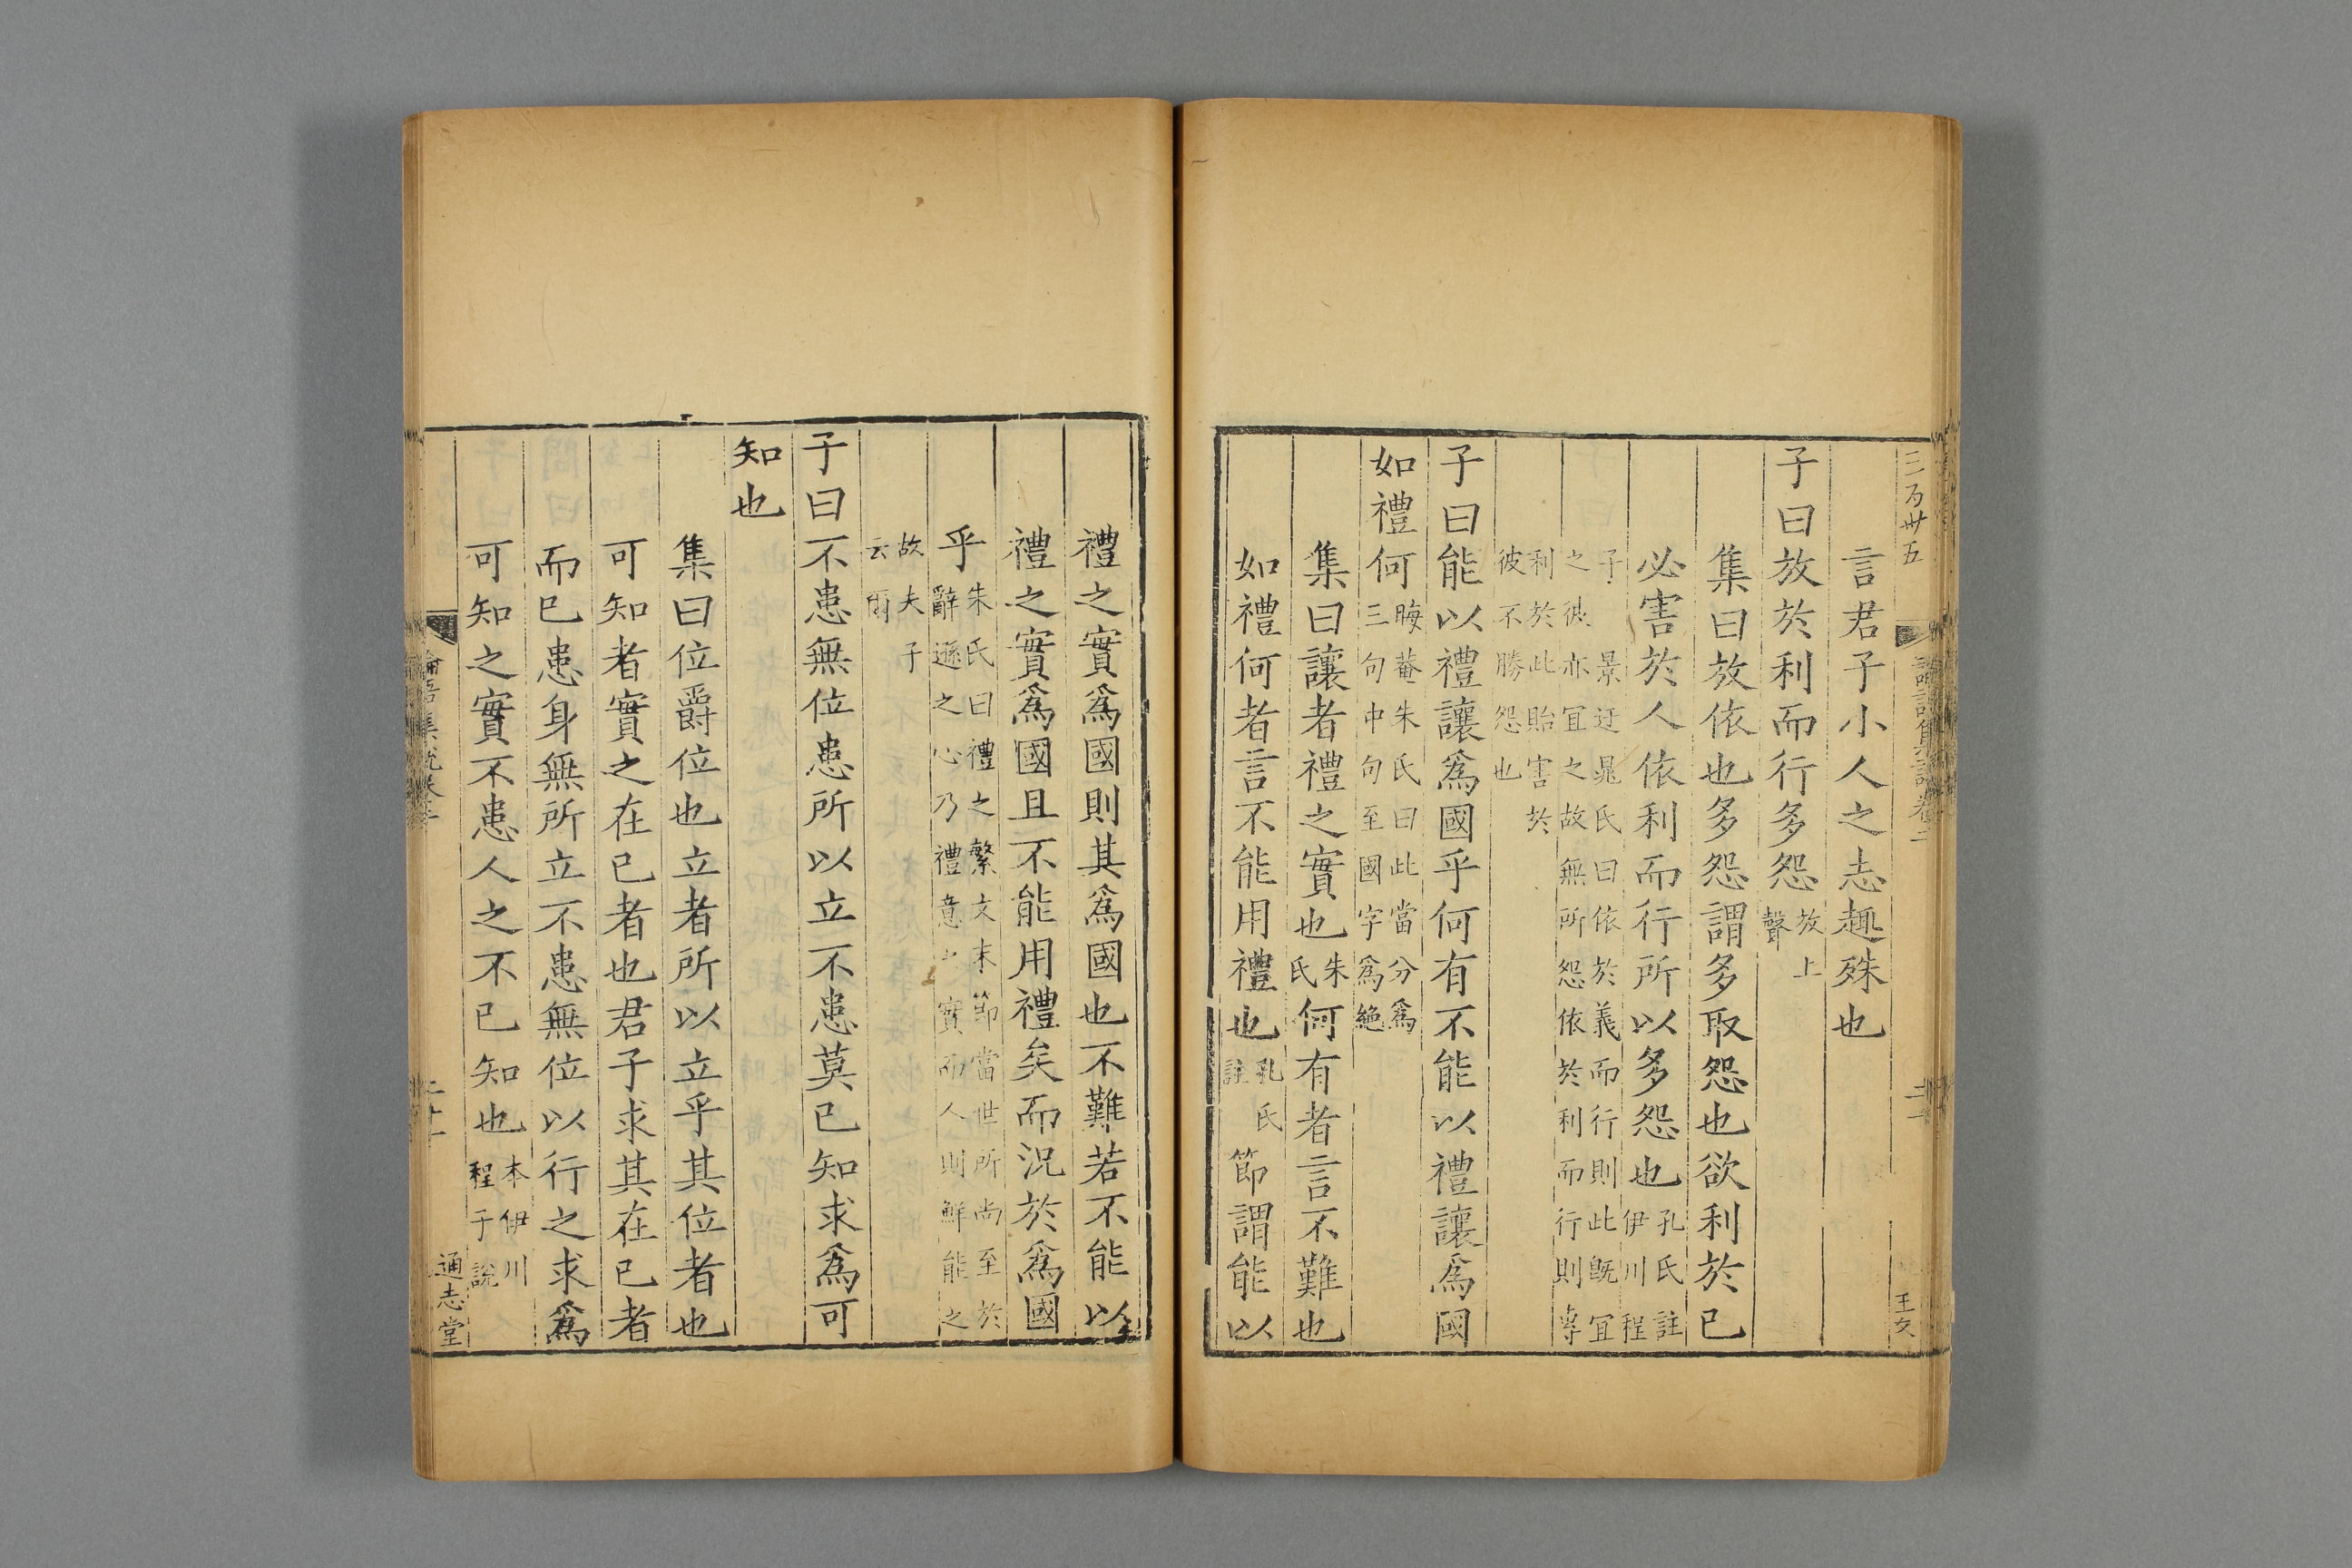 言君子小人之志趣殊也
子曰放於利而行多怨放上聲
集曰放依也多怨謂多取怨也欲利於己
必害於人依利而行所以多怨也孔氏註伊川程
子景迂晁氏曰依於義而行則此既宜之彼亦宜之故無所怨依於利而行則專
利於此貽害於彼不勝怨也
子曰能以禮讓爲國乎何有不能以禮讓爲國
如禮何晦菴朱氏曰此當分爲三句中句至國字爲絶
集曰讓者禮之實也朱氏何有者言不難也
如禮何者言不能用禮也孔氏註節謂能以
禮之實爲國則其爲國也不難若不能以
禮之實爲國且不能用禮矣而況於爲國
乎朱氏曰禮之繁文末節當世所尚至於辭遜之心乃禮意之實而人則鮮能之
故夫子云爾
子曰不患無位患所以立不患莫己知求爲可
知也
集曰位爵位也立者所以立乎其位者也
可知者實之在己者也君子求其在己者
而已患身無所立不患無位以行之求爲
可知之實不患人之不己知也本伊川程子說
論語集說卷二
二十一
通志堂